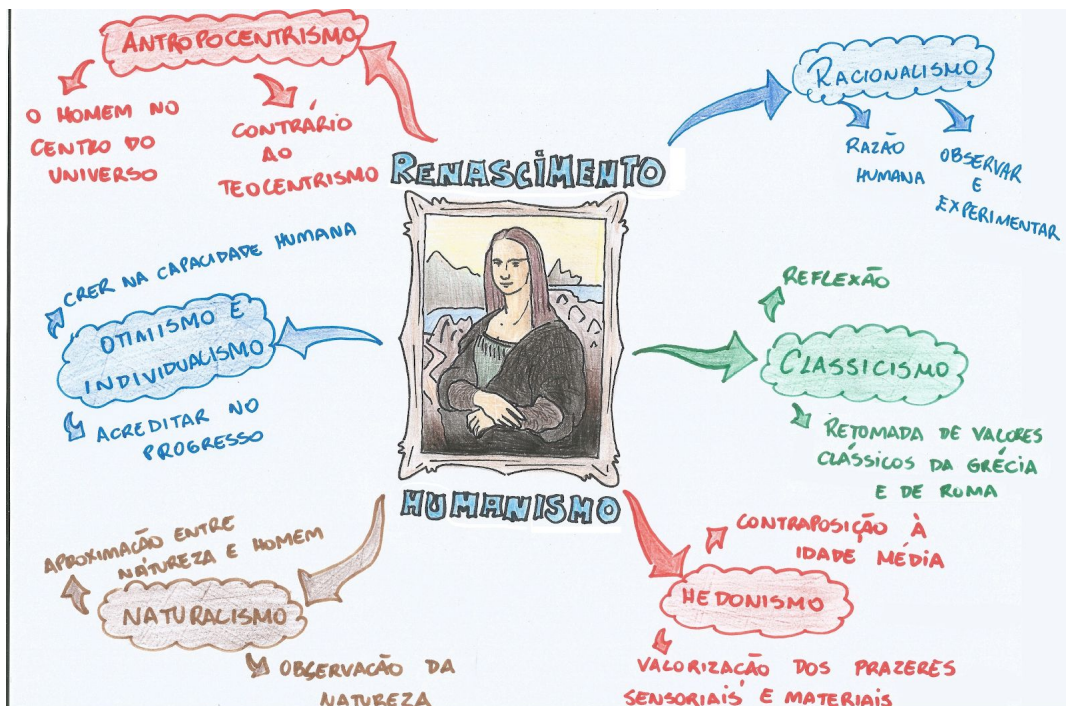 ANTROPOCENTRISMO
O HOMEM NO
CENTRO DO
UNIVERSO
CONTRÁRIO
AO
TEOCENTRISMO
RENASCIMENTO
RACIONALISMO
RAZÃO
HUMANA
OBSERVAR
E
EXPERIMENTAR
CRER NA CAPACIDADE HUMANA
OTIMISMO E
INDIVIDUALISMO
ACREDITAR NO
PROGRESSO
REFLEXÃO
CLASSICISMO
RETOMADA DE VALORES
CLÁSSICOS DA GRÉCIA
E DE ROMA
HUMANISMO
APROXIMAÇÃO ENTRE
NATUREZA E HOMEM
NATURALISMO
OBSERVAÇÃO DA
NATUREZA
CONTRAPOSIÇÃO À
IDADE MÉDIA
HEDONISMO
VALORIZAÇÃO DOS PRAZERES
SENSORIAIS E MATERIAIS